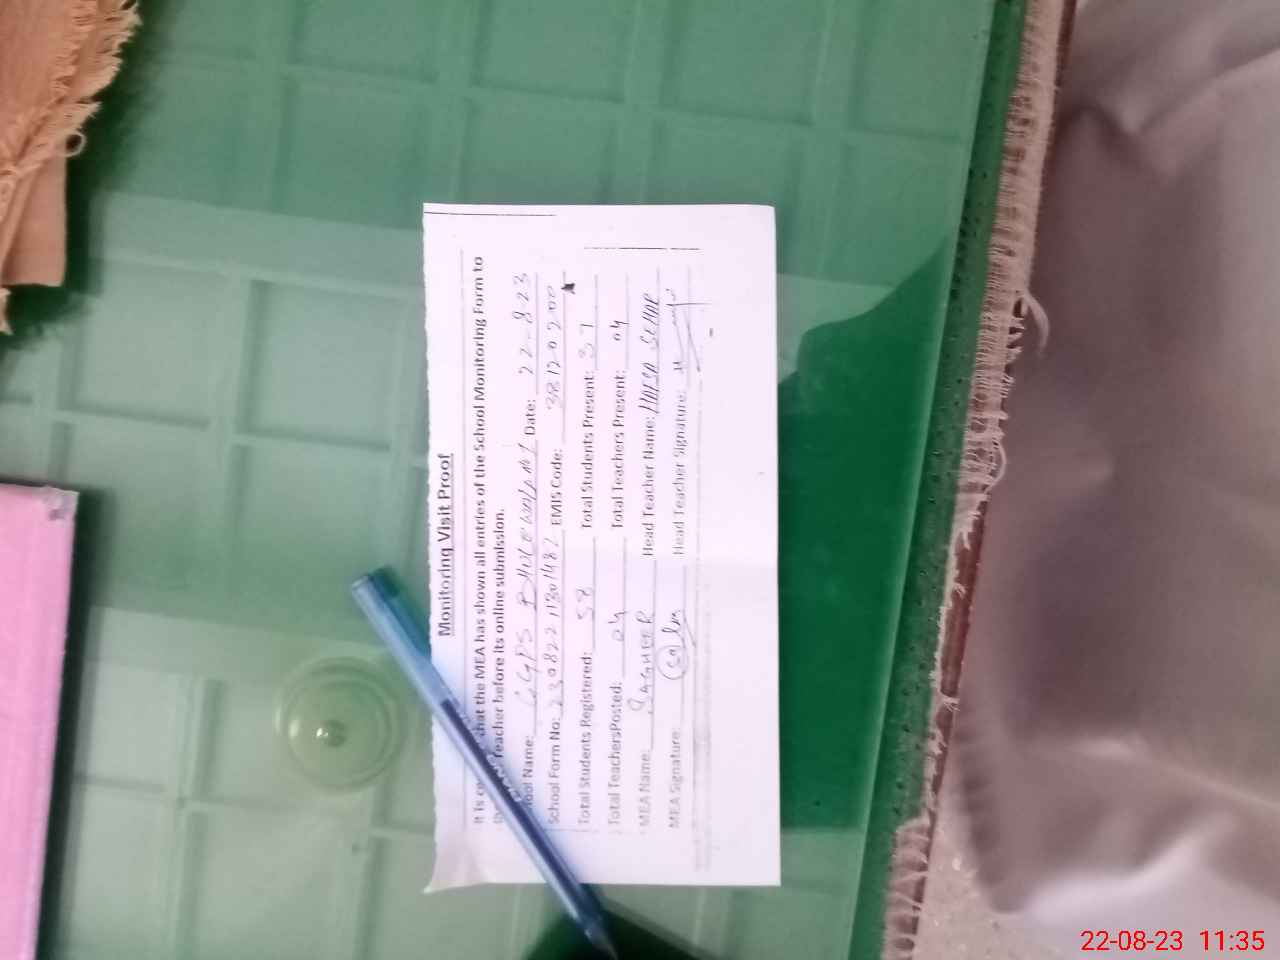 Monitoring Visit Proof
It is that the MEA has shown all entries of the School Monitoring Form to
Teacher before its online submission.
Name: GGPS Date: 22-8-23
School Form No: 230822 11301482 EMIS Code: 38120200
Total Students Registered: 58 Total Students Present: 37
Total TeachersPosted: 04 Total Teachers Present: 04
MEA Name: SAGHEER Head Teacher Name:
MEA Signature: Head Teacher Signature:
22-08-23 11:35